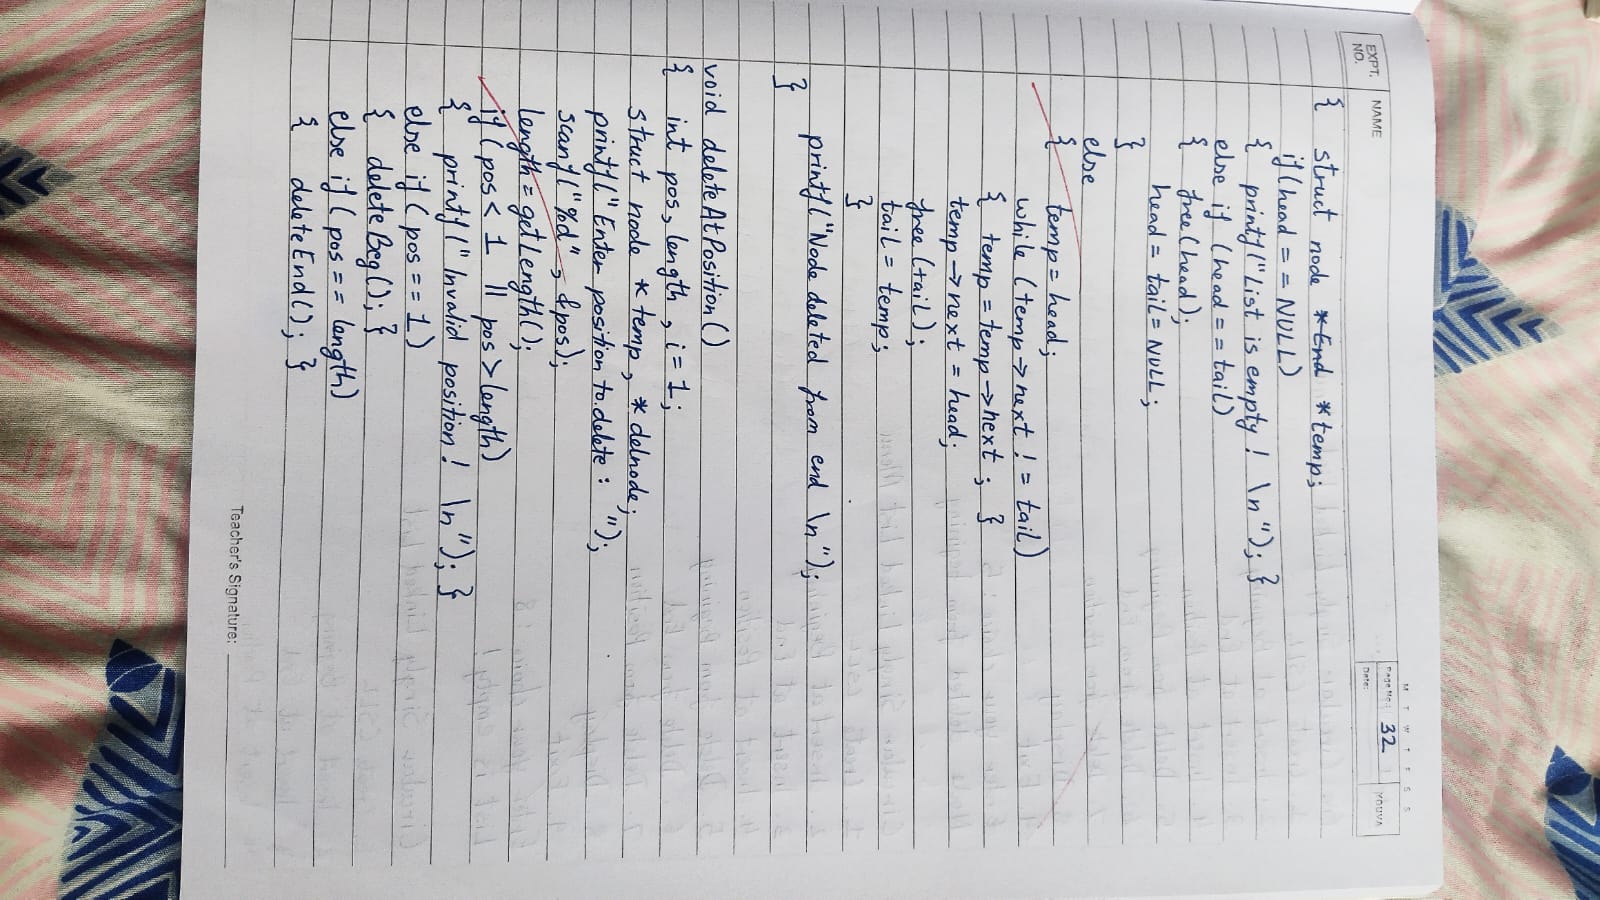 M T W T F S S
EXPT. NO.
NAME
Page No.: 32
Date:
YOUVA
{ struct node *End *temp;
if(head == NULL)
{ printf("List is empty! \n"); }
else if (head == tail)
{ free(head);
head = tail = NULL;
}
else
{ temp = head;
while (temp→next != tail)
{ temp = temp→next; }
temp→next = head;
free(tail);
tail = temp;
}
printf("Node deleted from end \n");
}
void deleteAtPosition()
{ int pos, length, i=1;
struct node *temp, *delnode;
printf("Enter position to.delete: ");
scanf("%d", &pos);
length = getLength();
if (pos < 1 || pos > length)
{ printf("Invalid position! \n"); }
else if (pos == 1)
{ deleteBeg(); }
else if (pos == length)
{ deleteEnd(); }
Teacher's Signature: